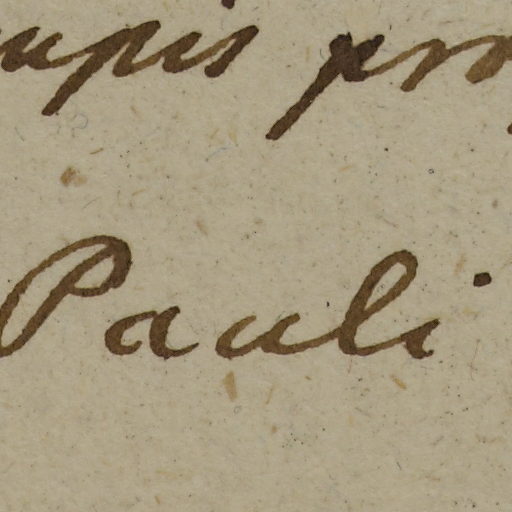 upis pro
Pauli